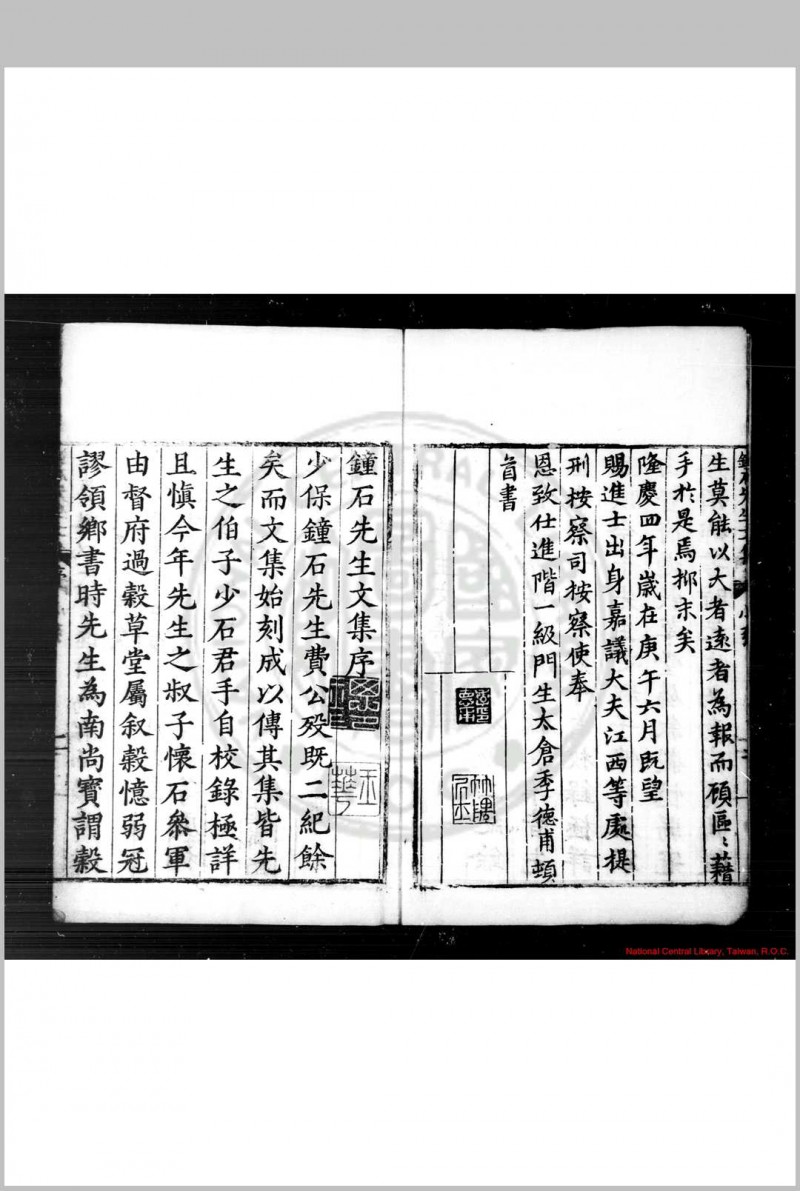 生莫能以大者遠者為報而顧區〻藉
手於是焉抑末矣
隆慶四年歲在庚午六月既望
賜進士出身嘉議大夫江西等處提
刑按察司按察使奉
恩致仕進階一級門生太倉季德甫頓
首書
鐘石先生文集序
少保鐘石先生費公歿既二紀餘
矣而文集始刻成以傳其集皆先
生之伯子少石君手自校錄極詳
且慎今年先生之叔子懷石叅軍
由督府過穀草堂屬叙穀憶弱冠
謬領鄉書時先生為南尚寳謂穀
National Central Library, Taiwan, R.O.C.